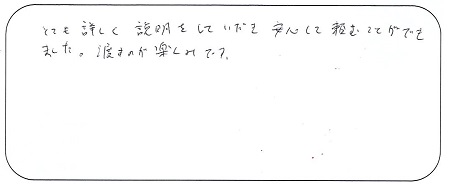 とても詳しく説明をしていだき安心して頼むことができ
ました。渡すのが楽しみです。